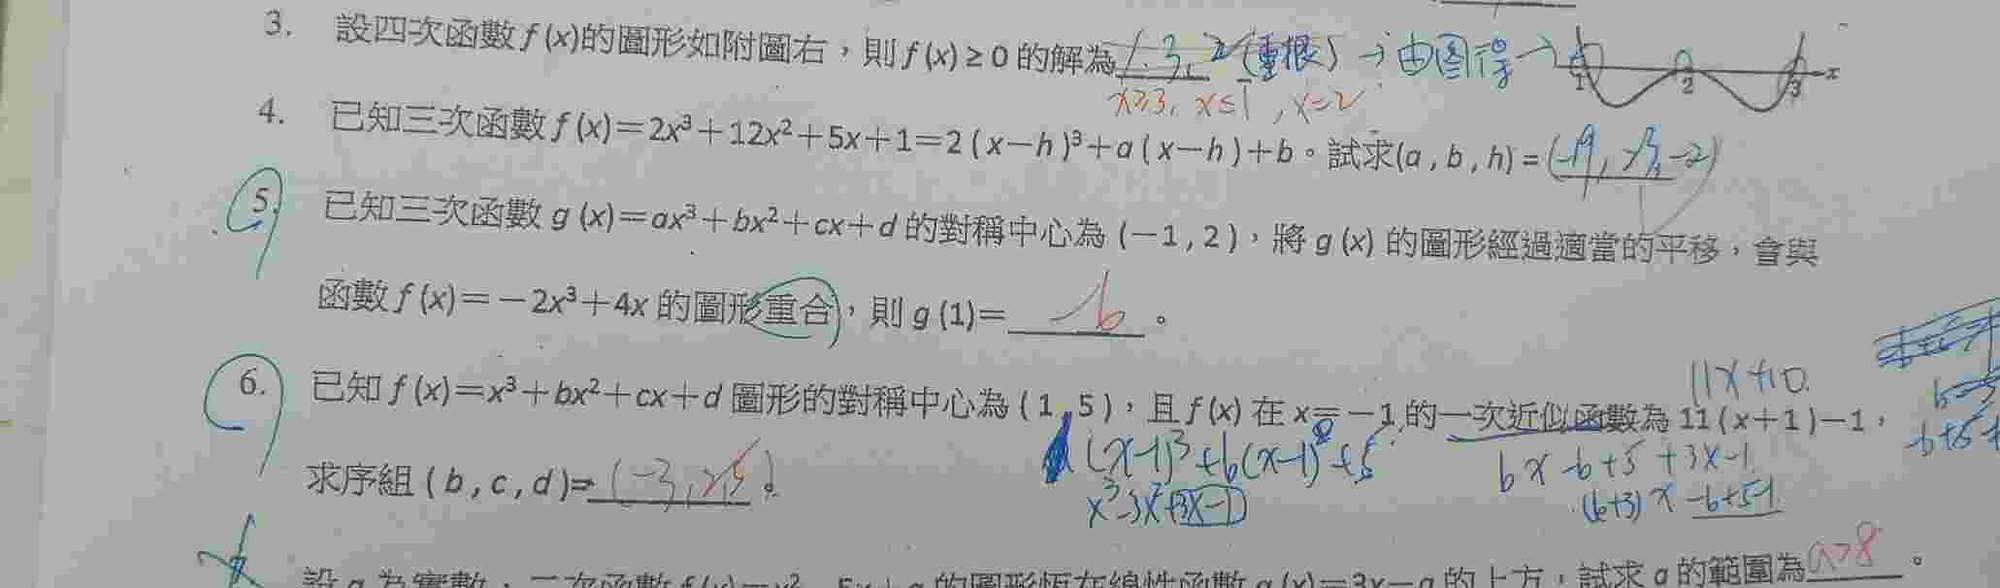 3. 設四次函數 f (x)的圖形如附圖右，則 f (x) ≥ 0 的解為 1. 3, 2 (重根) → 由图得 → 1 2 3 x
x≥3, x≤1, x=2
4. 已知三次函數 f (x)＝2x³＋12x²＋5x＋1＝2 ( x－h )³＋a ( x－h )＋b。試求(a , b , h) = (-19, -2)
5. 已知三次函數 g (x)＝ax³＋bx²＋cx＋d 的對稱中心為 (－1 , 2 )，將 g (x) 的圖形經過適當的平移，會與
函數 f (x)＝－2x³＋4x 的圖形重合，則 g (1)＝ -6 。
11x+10
6. 已知 f (x)＝x³＋bx²＋cx＋d 圖形的對稱中心為 ( 1 , 5 )，且 f (x) 在 x＝－1 的一次近似函數為 11 ( x＋1 )－1，
(x-1)³+b(x-1)+5 bx-b+5+3x-1
求序組 ( b , c , d )= (-3, 2, 5) 。
x³-3x²+3x-1 (b+3)x -b+5-1
設 a 為實數，二次函數 f (x)＝x²－5x＋a 的圖形恆在線性函數 g (x)＝3x－a 的上方，試求 a 的範圍為 a>8 。